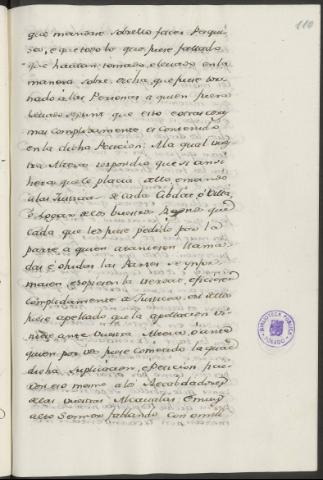 110
que mandase sobrello facer Pesqui-
sas, e que todo lo que fuese fallado
que habian tomado, e levado en la
manera sobre dicha, que fuese tor-
nado à las Personas a quien fuera
levado segunt que esto e otras cosas
mas complidamente es contenido
en la dicha Peticion: A la qual vues-
tra Alteza respondio que si ansi
hera que le placia dello e mandó
a las Justicias de cada Cibdat, ò Villa,
ò Logar de los vuestros Regnos que
cada que les fuese pedido por la
parte a quien atanieren llama-
das è ohidas las Partes se ynfor-
masen è sopiesen la verdat, è ficiesen
complidamente de Justicia, è si dellos
fuese apelado que la apellacion vi-
niese ante Vuestra Alteza ò ante
quien por vos fuese cometido la qual
dicha Suplicacion, è Peticion fue-
ron eso mesmo a los Recabdadores
de las vuestras Alcavalas è muy
alto Señor fablando con omill
BIBLIOTECA PUBLICA
TOLEDO